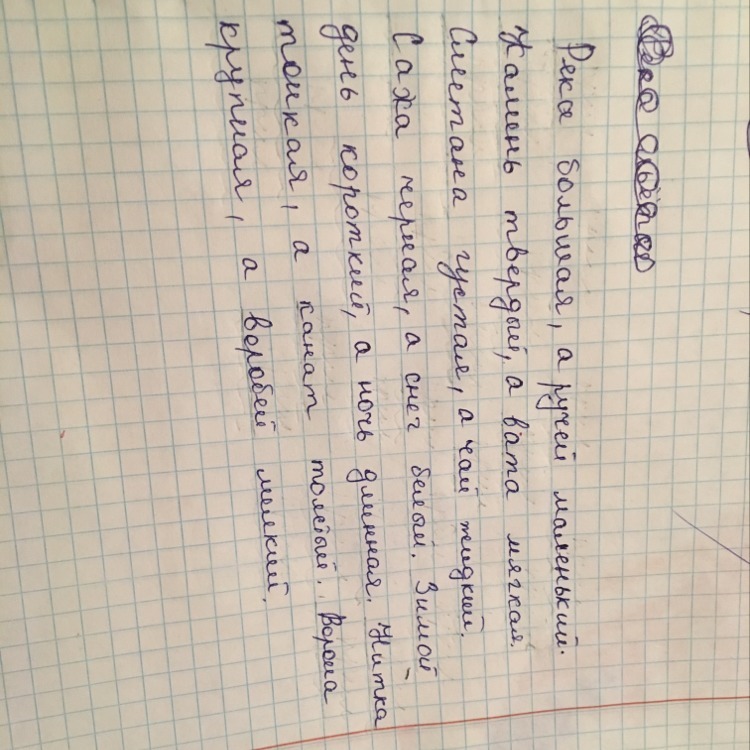 Река большая, а ручей маленький.
Камень твердый, а вата мягкая.
Сметана густая, а чай жидкий.
Сажа черная, а снег белый. Зимой
день короткий, а ночь длинная. Нитка
тонкая, а канат толстый. Ворона
крупная, а воробей мелкий.